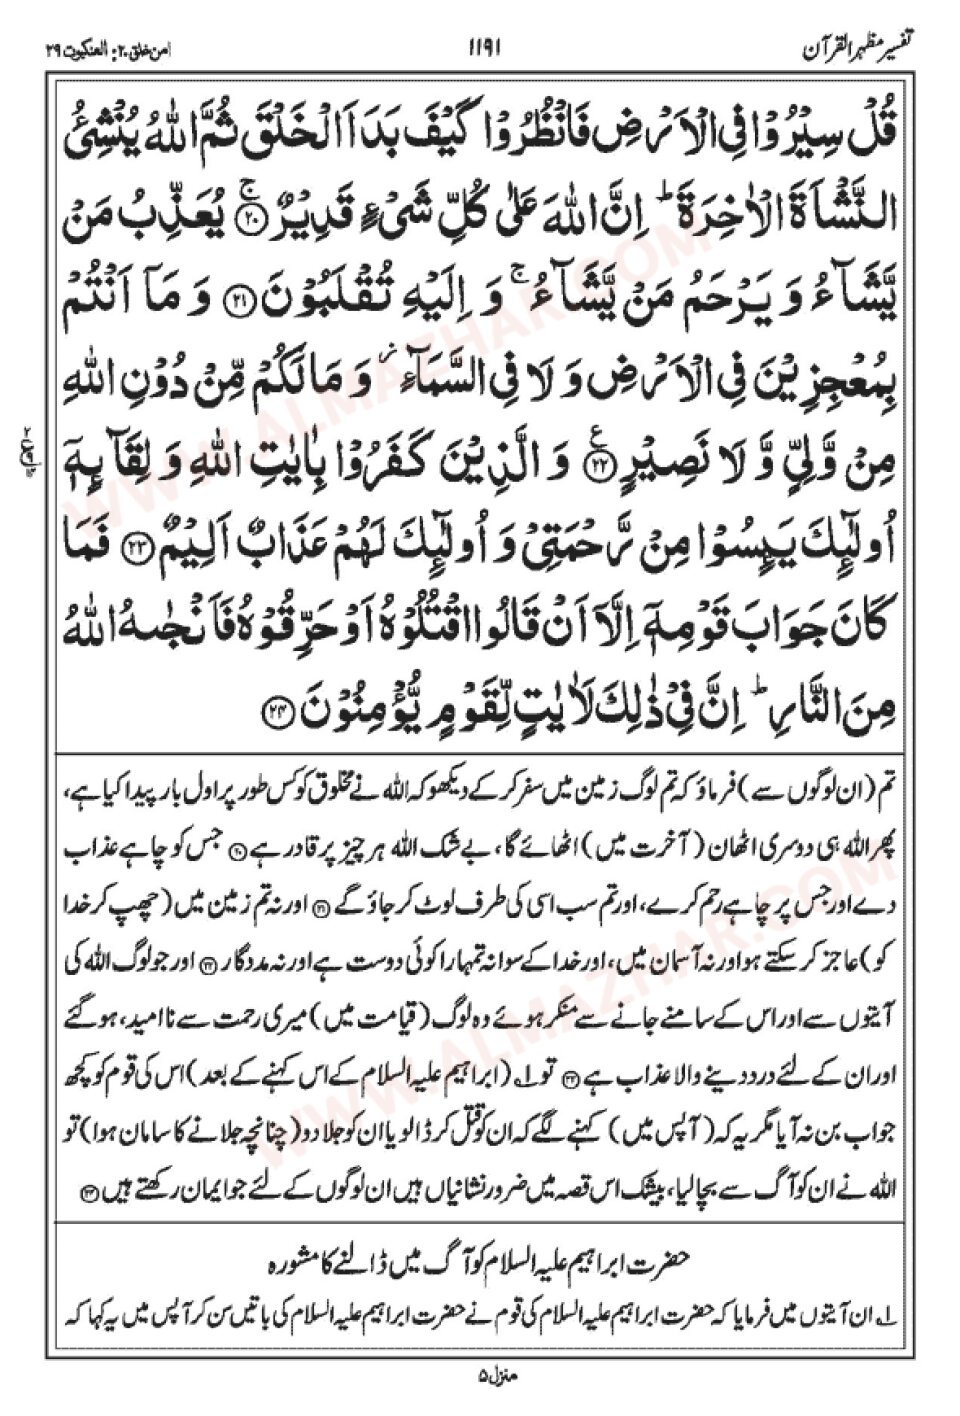 تفسیر مظہر القرآن
۱۱۹۱
امن خلق ۲۰: العنکبوت ۲۹
قُلْ سِيْرُوْا فِى الْاَرْضِ فَانْظُرُوْا كَيْفَ بَدَاَ الْخَلْقَ ثُمَّ اللهُ يُنْشِئُ
النَّشْاَةَ الْاٰخِرَةَ ؕ اِنَّ اللهَ عَلٰى كُلِّ شَىْءٍ قَدِيْرٌ ۚ ۲۰ يُعَذِّبُ مَنْ
يَّشَآءُ وَ يَرْحَمُ مَنْ يَّشَآءُ ۚ وَ اِلَيْهِ تُقْلَبُوْنَ ۲۱ وَ مَاۤ اَنْتُمْ
بِمُعْجِزِيْنَ فِى الْاَرْضِ وَ لَا فِى السَّمَآءِ ؗ وَ مَا لَكُمْ مِّنْ دُوْنِ اللهِ
مِنْ وَّلِىٍّ وَّ لَا نَصِيْرٍ ۲۲ ع وَ الَّذِيْنَ كَفَرُوْا بِاٰيٰتِ اللهِ وَ لِقَآئِهٖۤ
اُولٰٓئِكَ يَئِسُوْا مِنْ رَّحْمَتِىْ وَ اُولٰٓئِكَ لَهُمْ عَذَابٌ اَلِيْمٌ ۲۳ فَمَا
كَانَ جَوَابَ قَوْمِهٖۤ اِلَّاۤ اَنْ قَالُوا اقْتُلُوْهُ اَوْ حَرِّقُوْهُ فَاَنْجٰىهُ اللهُ
مِنَ النَّارِ ؕ اِنَّ فِىْ ذٰلِكَ لَاٰيٰتٍ لِّقَوْمٍ يُّؤْمِنُوْنَ ۲۴
تم (ان لوگوں سے) فرماؤ کہ تم لوگ زمین میں سفر کر کے دیکھو کہ اللہ نے مخلوق کو کس طور پر اول بار پیدا کیا ہے،
پھر اللہ ہی دوسری اٹھان (آخرت میں) اٹھائے گا، بے شک اللہ ہر چیز پر قادر ہے ۲۰ جس کو چاہے عذاب
دے اور جس پر چاہے رحم کرے، اور تم سب اسی کی طرف لوٹ کر جاؤ گے ۲۱ اور نہ تم زمین میں (چھپ کر خدا
کو) عاجز کر سکتے ہو اور نہ آسمان میں، اور خدا کے سوا نہ تمہارا کوئی دوست ہے اور نہ مددگار ۲۲ اور جو لوگ اللہ کی
آیتوں سے اور اس کے سامنے جانے سے منکر ہوئے وہ لوگ (قیامت میں) میری رحمت سے ناامید، ہو گئے
اور ان کے لئے درد دینے والا عذاب ہے ۲۳ تو ۱ (ابراہیم علیہ السلام کے اس کہنے کے بعد) اس کی قوم کو کچھ
جواب بن نہ آیا مگر یہ کہ (آپس میں) کہنے لگے کہ ان کو قتل کر ڈالو یا ان کو جلا دو (چنانچہ جلانے کا سامان ہوا) تو
اللہ نے ان کو آگ سے بچا لیا، بیشک اس قصہ میں ضرور نشانیاں ہیں ان لوگوں کے لئے جو ایمان رکھتے ہیں ۲۴
حضرت ابراہیم علیہ السلام کو آگ میں ڈالنے کا مشورہ
۱ ان آیتوں میں فرمایا کہ حضرت ابراہیم علیہ السلام کی قوم نے حضرت ابراہیم علیہ السلام کی باتیں سن کر آپس میں یہ کہا کہ
منزل ۵
WWW.ALMAZHAR.COM
WWW.ALMAZHAR.COM